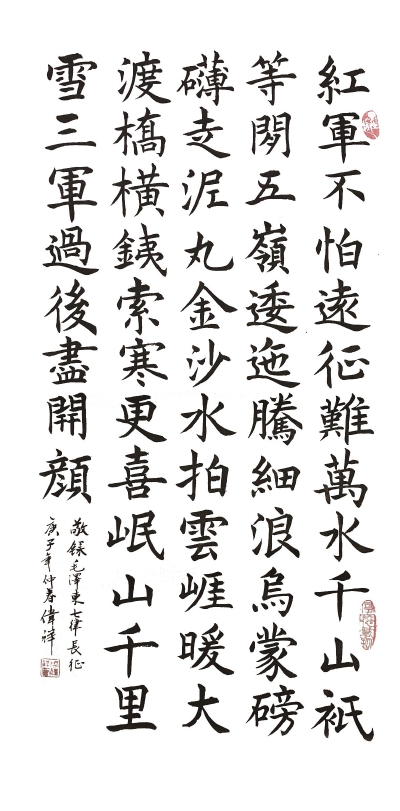 紅軍不怕遠征難萬水千山祇
等閑五嶺逶迤騰細浪烏蒙磅
礴走泥丸金沙水拍雲崕暖大
渡橋橫銕索寒更喜岷山千里
雪三軍過後盡開顔
敬録毛澤東七律長征
庚子年仲春偉祥